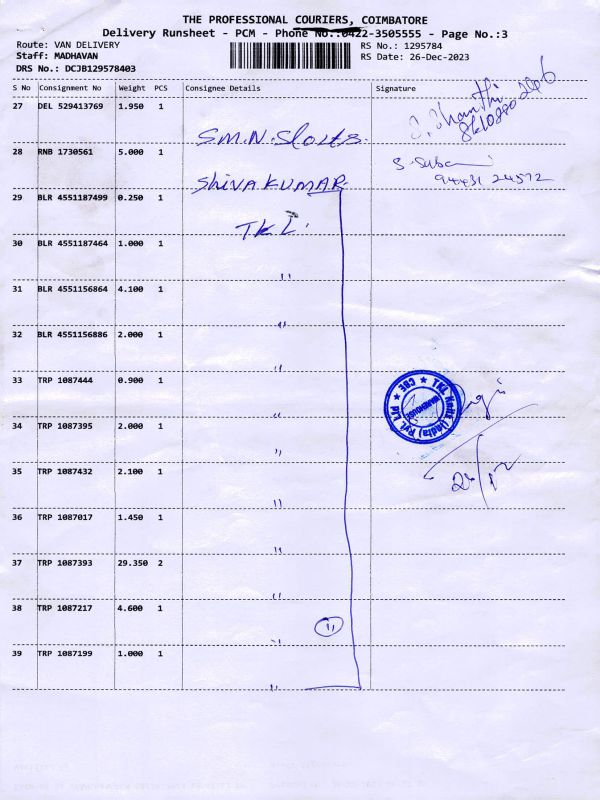 THE PROFESSIONAL COURIERS, COIMBATORE
Delivery Runsheet - PCM - Phone No.:0422-3505555 - Page No.:3
Route: VAN DELIVERY RS No.: 1295784
Staff: MADHAVAN RS Date: 26-Dec-2023
DRS No.: DCJB129578403
S No Consignment No Weight PCS Consignee Details Signature
27 DEL 529413769 1.950 1 S.M.N.
28 RNB 1730561 5.000 1 SHIVA KUMAR
94431 24572
29 BLR 4551187499 0.250 1 TKL
30 BLR 4551187464 1.000 1 "
31 BLR 4551156864 4.100 1 "
32 BLR 4551156886 2.000 1 "
33 TRP 1087444 0.900 1 "
TKL Knitz (India) Pvt. Ltd. CBE
WAREHOUSE
34 TRP 1087395 2.000 1 "
26/12
35 TRP 1087432 2.100 1 "
36 TRP 1087017 1.450 1 "
37 TRP 1087393 29.350 2 "
38 TRP 1087217 4.600 1 "
11
39 TRP 1087199 1.000 1 "